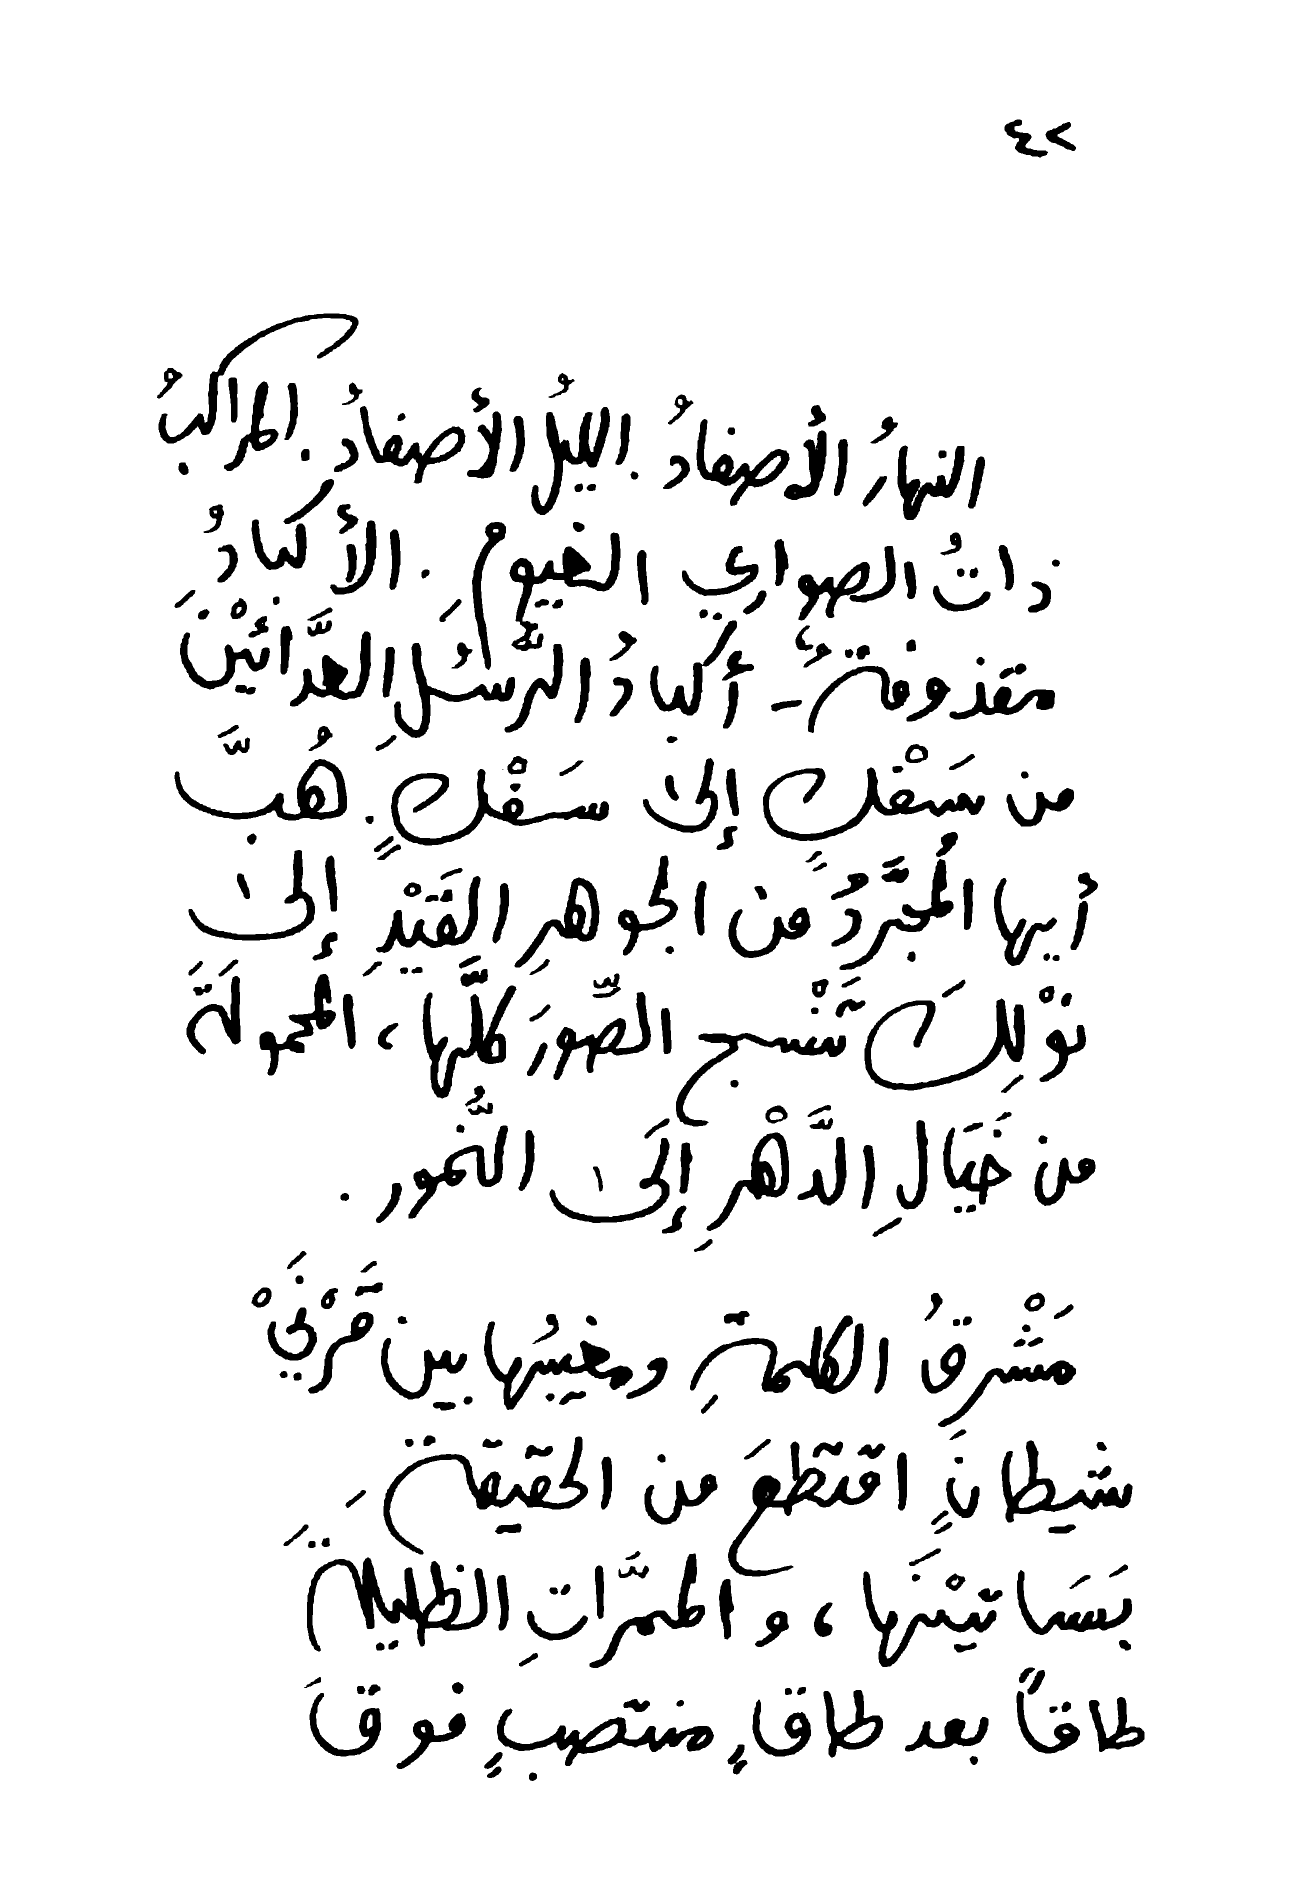 ٤٢
النهارُ الأصفادُ. الليلُ الأصفادُ. المراكبُ
ذاتُ الصواري الغيومِ. الأكبادُ
مقذوفةٌ - أكبادُ الرُّسُلِ العدَّائيْنَ
من سَفْكٍ إلى سَفْكٍ. هُبَّ
أيها المُجَرَّدُ من الجوهرِ القَيْدِ إلى
نَوْلِكَ تَنْسج الصِّوَرَ كلَّها، المحمولَةَ
من خَيَالِ الدَّهْرِ إلَى النُّمور.
مَشْرِقُ الكلمةِ ومغيبُها بين قَرْنَيْ
شيطانٍ اقتطعَ من الحقيقة
بَسَاتيْنَها، والممرَّاتِ الظليلةَ
طاقاً بعد طاقٍ منتصبٍ فوقَ